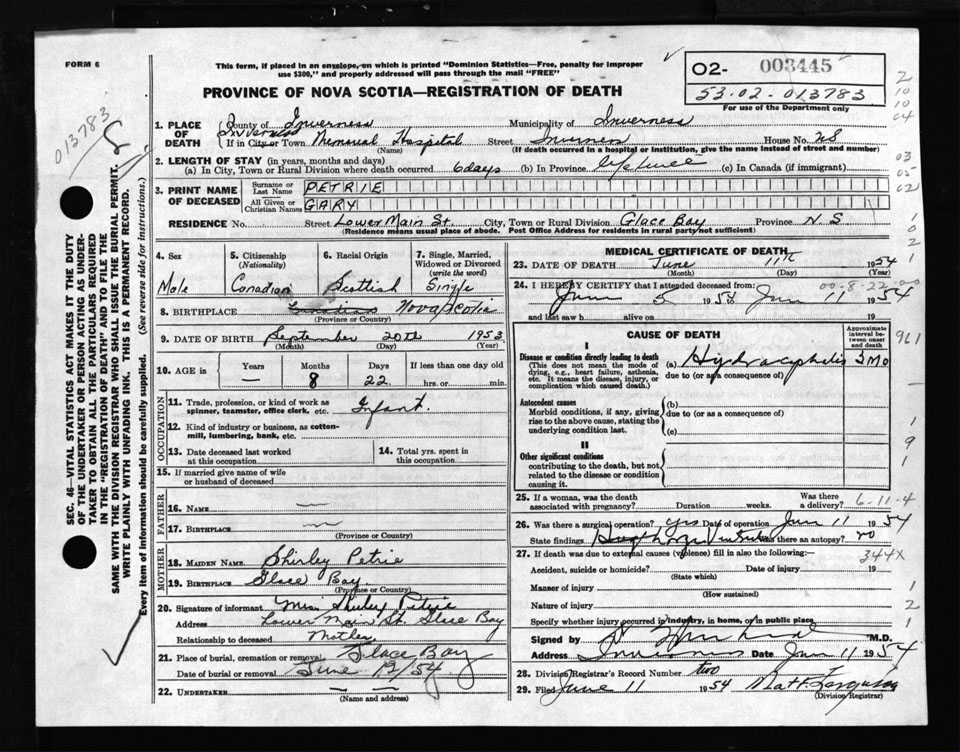 FORM 6
This form, if placed in an envelope, on which is printed "Dominion Statistics—Free, penalty for improper
use $300," and properly addressed will pass through the mail "FREE"
O2- 003445
53-02-013783
For use of the Department only
PROVINCE OF NOVA SCOTIA—REGISTRATION OF DEATH
013783
1. PLACE OF DEATH
County of Inverness Municipality of Inverness
If in City or Town Inverness Memorial Hospital Street House No.
(Name) (If death occurred in a hospital or institution, give the name instead of street and number)
2. LENGTH OF STAY (in years, months and days)
(a) In City, Town or Rural Division where death occurred 6 days (b) In Province (c) In Canada (if immigrant)
3. PRINT NAME OF DECEASED
Surname or Last Name PETRIE
All Given or Christian Names GARY
RESIDENCE No. Street Lower Main St. City, Town or Rural Division Glace Bay Province N.S.
(Residence means usual place of abode. Post Office Address for residents in rural party not sufficient)
4. Sex Male
5. Citizenship (Nationality) Canadian
6. Racial Origin Scottish
7. Single, Married, Widowed or Divorced (write the word) Single
8. BIRTHPLACE Canadian Nova Scotia
(Province or Country)
9. DATE OF BIRTH September 20th 1953
(Month) (Day) (Year)
10. AGE in Years — Months 8 Days 22 If less than one day old hrs. or min.
OCCUPATION
11. Trade, profession, or kind of work as spinner, teamster, office clerk, etc. Infant.
12. Kind of industry or business, as cotton-mill, lumbering, bank, etc.
13. Date deceased last worked at this occupation
14. Total yrs. spent in this occupation
15. If married give name of wife or husband of deceased
FATHER
16. NAME —
17. BIRTHPLACE —
(Province or Country)
MOTHER
18. MAIDEN NAME Shirley Petrie
19. BIRTHPLACE Glace Bay
(Province or Country)
20. Signature of informant Mrs. Shirley Petrie
Address Lower Main St. Glace Bay
Relationship to deceased Mother
21. Place of burial, cremation or removal Glace Bay
Date of burial or removal June 12/54
22. UNDERTAKER — —
(Name and address)
MEDICAL CERTIFICATE OF DEATH
23. DATE OF DEATH June 11th 1954
(Month) (Day) (Year)
24. I HEREBY CERTIFY that I attended deceased from: 00-8-22-00
June 5 1954 Jun 11 1954
and last saw h alive on 19
CAUSE OF DEATH
Approximate interval between onset and death
I
Disease or condition directly leading to death
(This does not mean the mode of dying, e.g., heart failure, asthenia, etc. It means the disease, injury, or complication which caused death.)
(a)
due to (or as a consequence of)
Antecedent causes
Morbid conditions, if any, giving rise to the above cause, stating the underlying condition last.
(b)
due to (or as a consequence of)
(c)
II
Other significant conditions
contributing to the death, but not related to the disease or condition causing it.
25. If a woman, was the death associated with pregnancy? Duration weeks. Was there a delivery? 6-11-4
26. Was there a surgical operation? yes Date of operation Jun 11 1954
State findings Was there an autopsy? no
27. If death was due to external causes (violence) fill in also the following:— 344X
Accident, suicide or homicide? Date of injury 19
(State which)
Manner of injury
(How sustained)
Nature of injury
Specify whether injury occurred in industry, in home, or in public place
Signed by M.D.
Address Inverness Date Jun 11 1954
28. Division Registrar's Record Number two
29. Filed June 11 1954 Matt. Ferguson
(Division Registrar)
SEC. 46—VITAL STATISTICS ACT MAKES IT THE DUTY
OF THE UNDERTAKER OR PERSON ACTING AS UNDER-
TAKER TO OBTAIN ALL THE PARTICULARS REQUIRED
IN THE "REGISTRATION OF DEATH" AND TO FILE THE
SAME WITH THE DIVISION REGISTRAR WHO SHALL ISSUE THE BURIAL PERMIT.
WRITE PLAINLY WITH UNFADING INK. THIS IS A PERMANENT RECORD.
Every item of information should be carefully supplied. (See reverse side for instructions.)
2
10
10
04
03
05
02
1
0
2
1
961
1
9
1
1
2
1